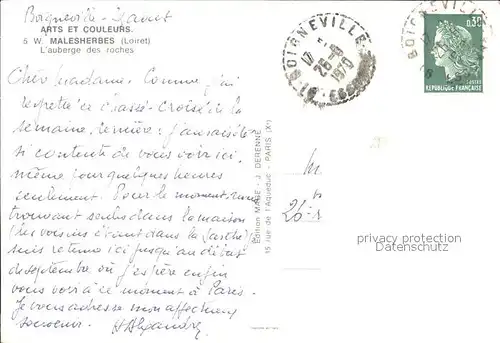 Boigneville - Jauret
ARTS ET COULEURS
5 W. MALESHERBES (Loiret)
L'auberge des roches
Chère Madame. Comme j'ai
regretté ce chassé-croisé de la
semaine dernière; j'aurais été
si contente de vous voir ici,
même pour quelques heures
seulement. Pour le moment, me
trouvant seule dans la maison
(les voisins étant dans la Sarthe) je
suis retenue ici jusqu'au début
de septembre où j'espère enfin
vous voir à ce moment à Paris.
Je vous adresse mon affectueux
souvenir.
Edition MAGE - J. DERENNE
15 rue de l'Aqueduc - PARIS (Xe)
BOIGNEVILLE
17 H
26-8
1970
91 ESSONNE
BOIGNEVILLE
0,30
POSTES
REPUBLIQUE FRANÇAISE
privacy protection
Datenschutz